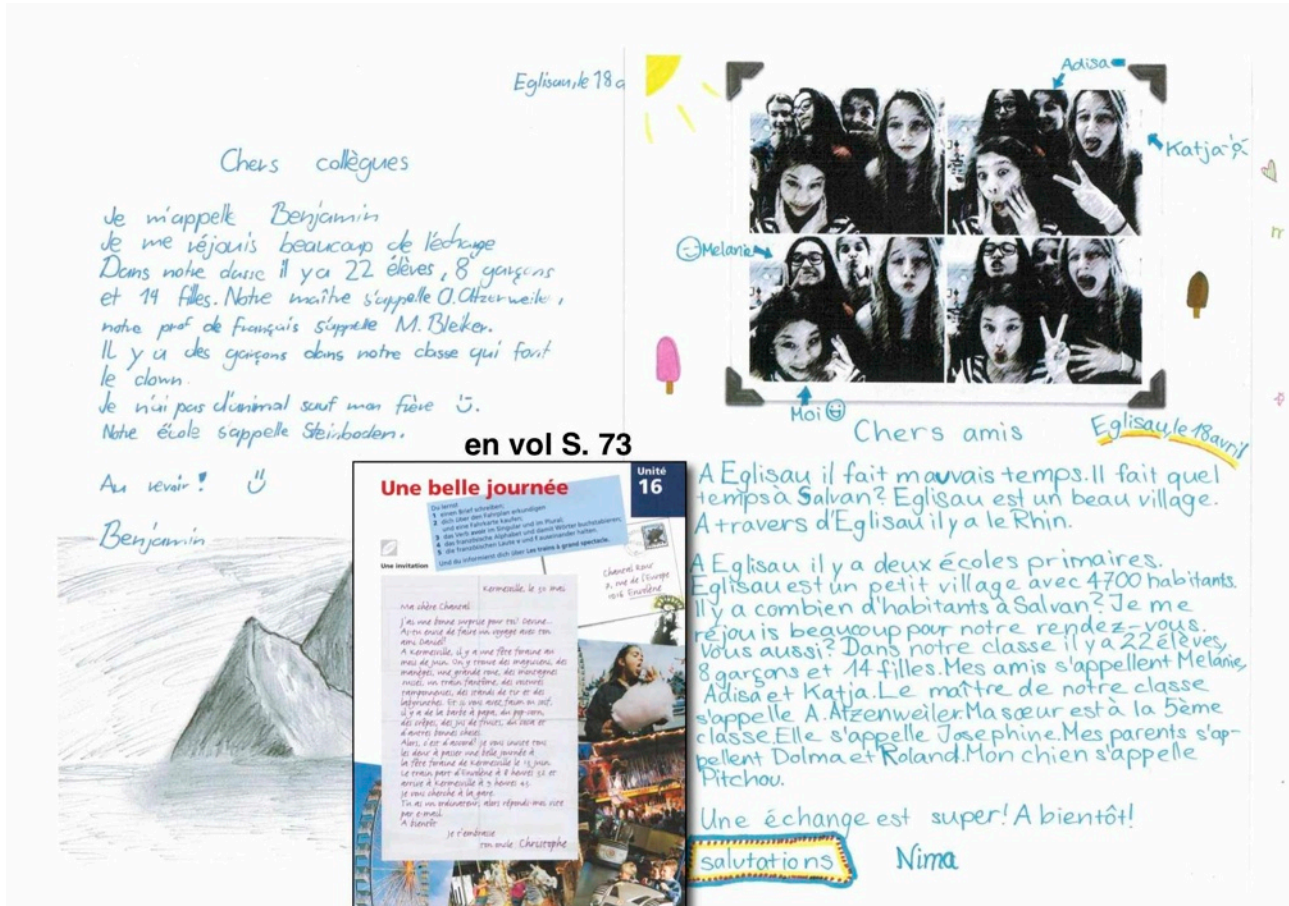 Eglisau, le 18 a
Chers collègues
Je m'appelle Benjamin
Je me réjouis beaucoup de l'échange
Dans notre classe il y a 22 élèves, 8 garçons
et 14 filles. Notre maître s'appelle
notre prof de français s'appelle M. Bleiker.
Il y a des garçons dans notre classe qui font
le clown.
Je n'ai pas d'animal sauf mon frère
Notre école s'appelle Steinboden.
Au revoir!
Benjamin
en vol S. 73
Unité
16
Une belle journée
Du lernst
1 einen Brief schreiben;
2 dich über den Fahrplan erkundigen
und eine Fahrkarte kaufen;
3 das Verb avoir im Singular und im Plural;
4 das französische Alphabet und damit Wörter buchstabieren;
5 die französischen Laute
auseinander halten.
Und du informierst dich über Les trains à grand spectacle.
Une invitation
Chantal
rue de l'Europe
Envolène
Kermesville, le 30 mai
Ma chère Chantal
J'ai une bonne surprise pour toi! Devine...
As-tu envie de faire un voyage avec ton
ami Daniel?
A Kermesville, il y a une fête foraine au
mois de juin. On y trouve des magiciens, des
manèges, une grande roue, des montagnes
russes, un train fantôme, des voitures
tamponneuses, des stands de tir et des
labyrinthes. Et si vous avez faim ou soif,
il y a de la barbe à papa, du pop-corn,
des crêpes, des jus de fruits, du coca et
d'autres bonnes choses.
Alors, c'est d'accord? Je vous invite tous
les deux à passer une belle journée à
la fête foraine de Kermesville le 15 juin.
Le train part d'Envolène à 8 heures 52 et
arrive à Kermesville à 9 heures 45.
Je vous cherche à la gare.
Tu as un ordinateur, alors réponds-moi vite
par e-mail.
A bientôt
Je t'embrasse
ton oncle Christophe
Adisa
Katja
Melanie
Moi
Chers amis
Eglisau, le 18 avril
A Eglisau il fait mauvais temps. Il fait quel
temps à Salvan? Eglisau est un beau village.
A travers d'Eglisau il y a le Rhin.
A Eglisau il y a deux écoles primaires.
Eglisau est un petit village avec 4700 habitants.
Il y a combien d'habitants à Salvan? Je me
réjouis beaucoup pour notre rendez-vous.
Vous aussi? Dans notre classe il y a 22 élèves,
8 garçons et 14 filles. Mes amis s'appellent Melanie,
Adisa et Katja. Le maître de notre classe
s'appelle A. Atzenweiler. Ma sœur est à la 5ème
classe. Elle s'appelle Josephine. Mes parents s'ap-
pellent Dolma et Roland. Mon chien s'appelle
Pitchou.
Une échange est super! A bientôt!
salutations
Nima